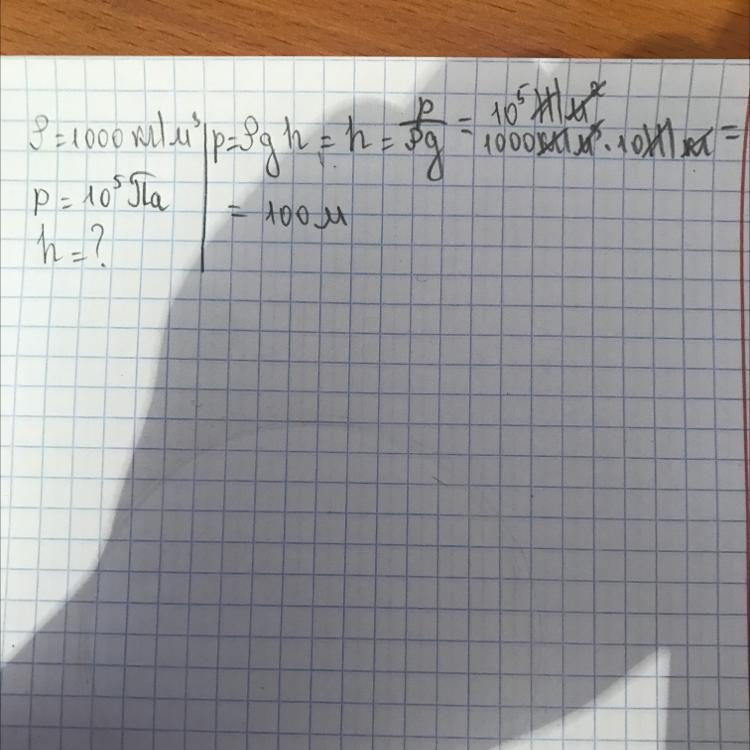 ρ = 1000 кг/м³
p = 10⁵ Па
h = ?
p = ρgh = h = p/ρg = 10⁵ Н/м² / 1000 кг/м³ · 10 Н/кг =
= 100 м